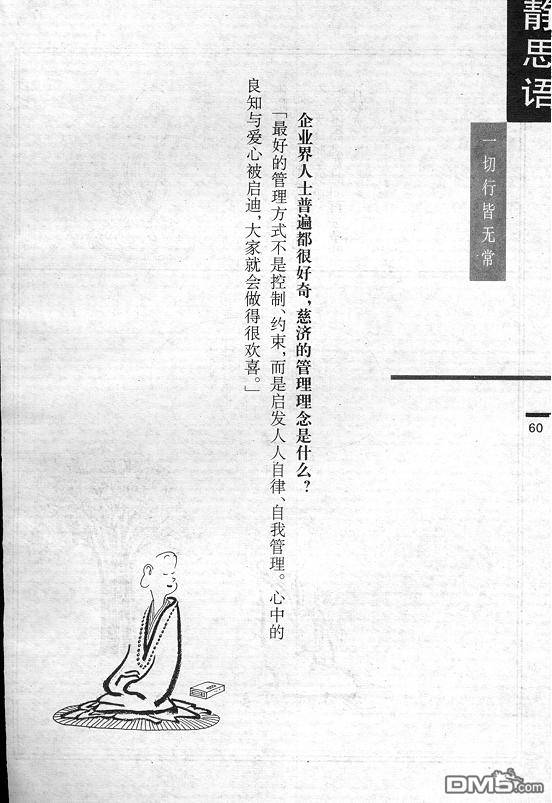 静思语
一切行皆无常
60
企业界人士普遍都很好奇，慈济的管理理念是什么？
「最好的管理方式不是控制、约束，而是启发人人自律、自我管理。心中的
良知与爱心被启迪，大家就会做得很欢喜。」
DM5.com